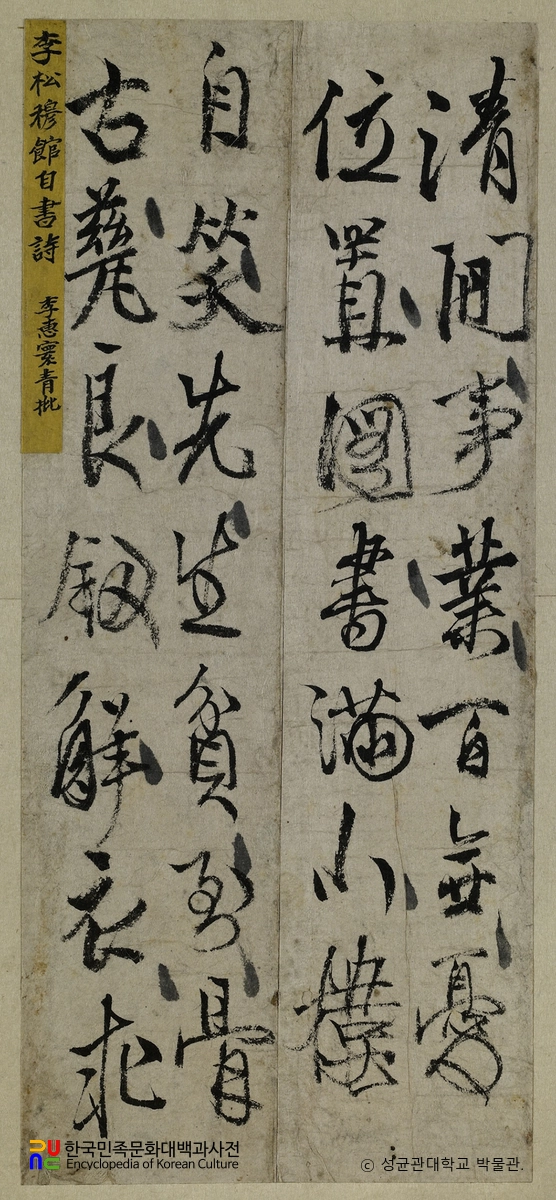 清閒事業百無憂
位置圖書滿小樓
自笑先生貧到骨
古甆良釼解衣求
李松穆館自書詩 李惠寰青批
한국민족문화대백과사전
Encyclopedia of Korean Culture
© 성균관대학교 박물관.